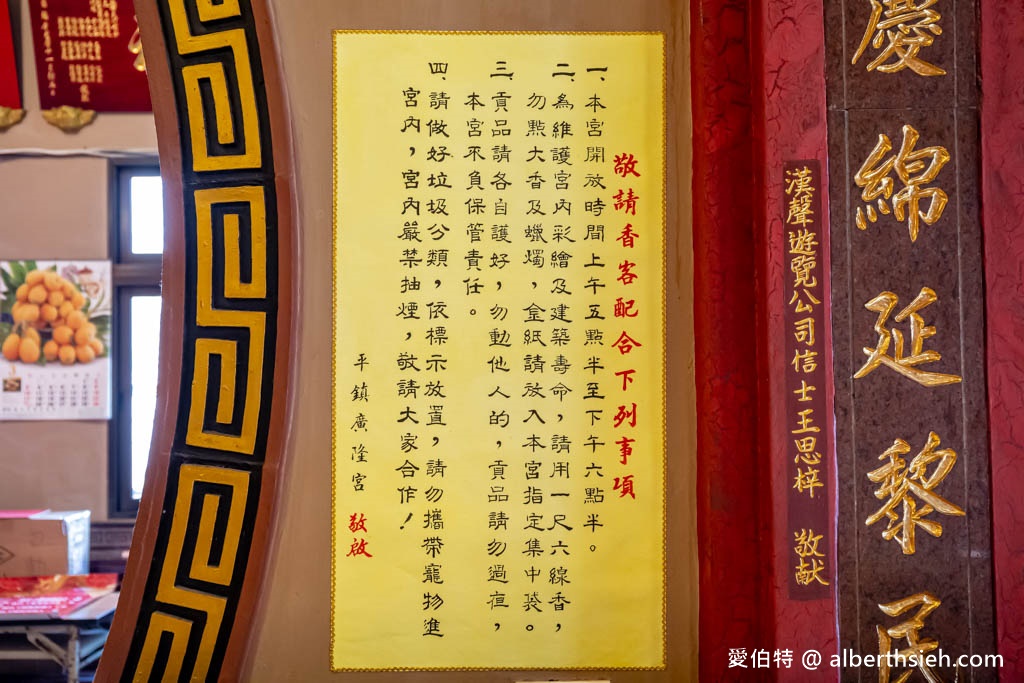 慶綿延黎民
漢聲遊覽公司信士王思梓 敬献
敬請香客配合下列事項
一、本宮開放時間上午五點半至下午六點半。
二、為維護宮內彩繪及建築壽命，請用一尺六線香，
勿點大香及蠟燭，金紙請放入本宮指定集中袋。
三、貢品請各自護好，勿動他人的，貢品請勿過，
本宮不負保管責任。
四、請做好垃圾分類，依標示放置，請勿攜帶寵物進
宮內，宮內嚴禁抽煙，敬請大家合作！
平鎮廣隆宮 敬啟
愛伯特 @ alberthsieh.com